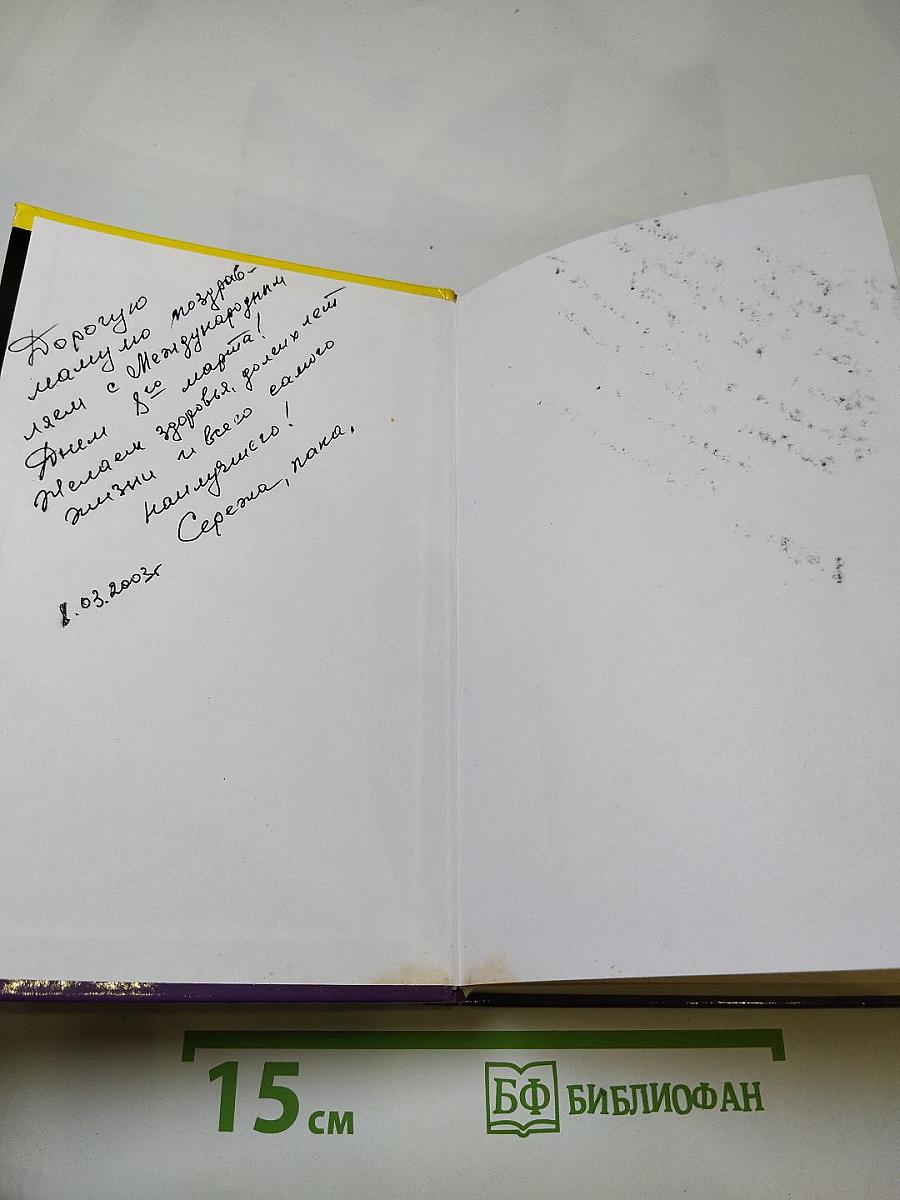 Дорогую
мамулю поздрав-
ляем с Международным
Днем 8го марта!
Желаем здоровья, долгих лет
жизни и всего самого
наилучшего!
Сережа, папа.
8.03.2003г
15 см
БФ БИБЛИОФАН